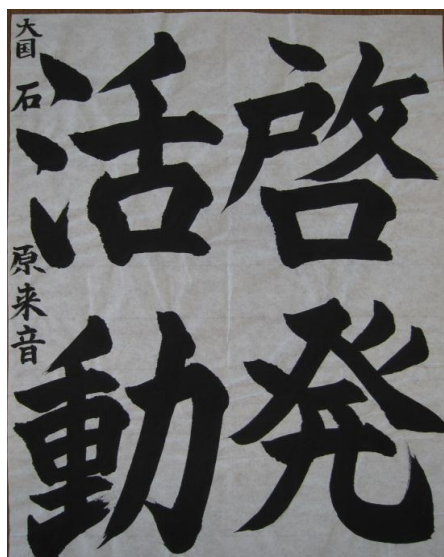 啓発
活動
大国 石原来音